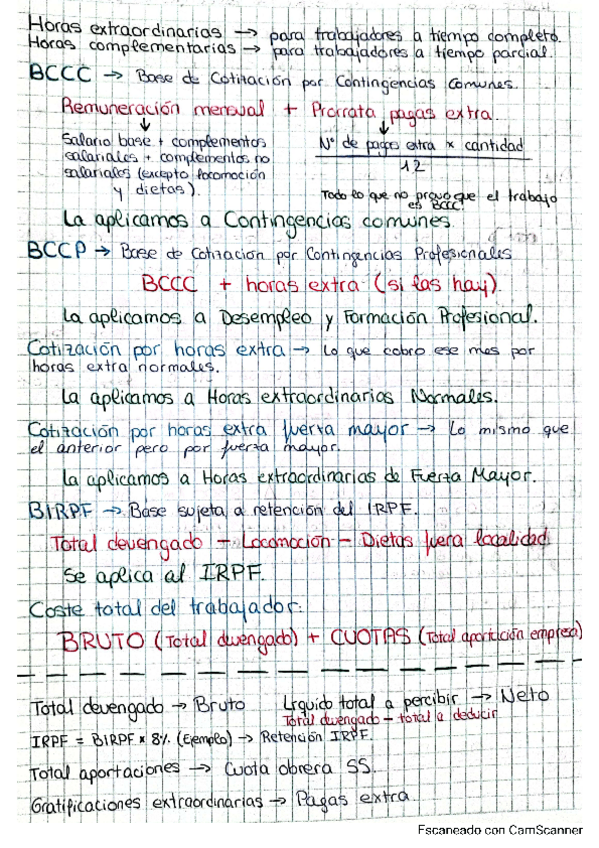 Horas extraordinarias → para trabajadores a tiempo completo.
Horas complementarias → para trabajadores a tiempo parcial.
BCCC → Base de Cotización por Contingencias Comunes.
Remuneración mensual + Prorrata pagas extra.
Salario base + complementos
salariales + complementos no
salariales (excepto locomoción
y dietas).
Nº de pagas extra x cantidad
12
Todo lo que no provoque el trabajo
es BCCC
La aplicamos a Contingencias comunes
BCCP → Base de Cotización por Contingencias Profesionales
BCCC + horas extra (si las hay)
La aplicamos a Desempleo y Formación Profesional.
Cotización por horas extra → Lo que cobro ese mes por
horas extra normales.
La aplicamos a Horas extraordinarias Normales.
Cotización por horas extra fuerza mayor → Lo mismo que
el anterior pero por fuerza mayor.
La aplicamos a Horas extraordinarias de Fuerza Mayor.
BIRPF → Base sujeta a retención del IRPF.
Total devengado - Locomoción - Dietas fuera localidad
Se aplica al IRPF.
Coste total del trabajador:
BRUTO (Total devengado) + CUOTAS (Total aportación empresa)
Total devengado → Bruto
Líquido total a percibir → Neto
Total devengado - total a deducir
IRPF = BIRPF x 8% (Ejemplo) → Retención IRPF.
Total aportaciones → Cuota obrera SS.
Gratificaciones extraordinarias → Pagas extra
Escaneado con CamScanner